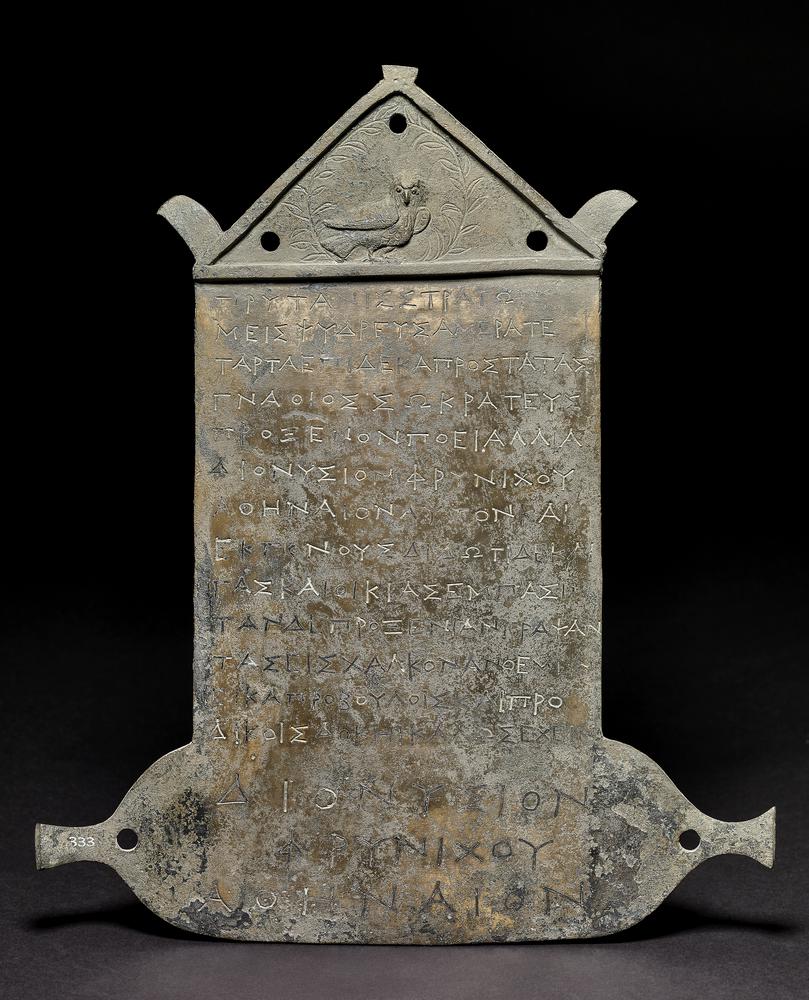 ΠΡΥΤΑΝΙΣΣΤΡΑΤΩΝ
ΜΕΙΣΨΥΔΡΕΥΣΑΜΕΡΑΤΕ
ΤΑΡΤΑΕΠΙΔΕΚΑΠΡΟΣΤΑΤΑΣ
ΓΝΑΘΙΟΣΣΩΚΡΑΤΕΥΣ
ΠΡΟΞΕΝΟΝΠΟΕΙΑΛΛΙΑ
ΔΙΟΝΥΣΙΟΝΦΡΥΝΙΧΟΥ
ΑΘΗΝΑΙΟΝΑΥΤΟΝΚΑΙ
ΕΚΓΟΝΟΥΣΔΙΔΩΤΙΔΕΚΑΙ
ΓΑΣΚΑΙΟΙΚΙΑΣΕΜΠΑΣΙΝ
ΤΑΝΔΕΠΡΟΞΕΝΙΑΝΓΡΑΨΑΝ
ΤΑΣΕΙΣΧΑΛΚΟΝΑΝΘΕΜΕΝ
ΕΙΚΑΠΡΟΒΟΥΛΟΙΣΚΑΙΠΡΟ
ΔΙΚΟΙΣΔΟΚΗΙΚΑΛΩΣΕΧΕΙΝ
ΔΙΟΝΥΣΙΟΝ
ΦΡΥΝΙΧΟΥ
ΑΘΗΝΑΙΟΝ
333